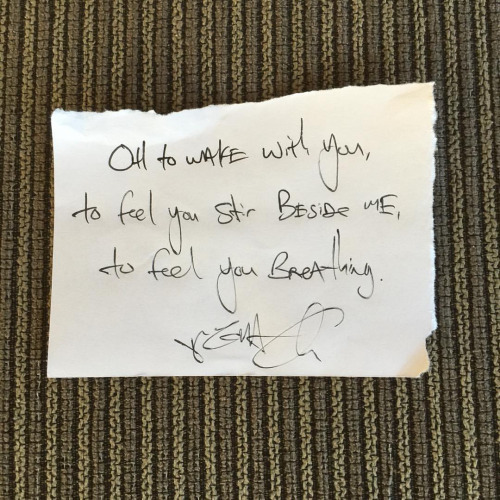 OH to WAKE with you,
to feel you stir BESIDE ME,
to feel you BREAthing.